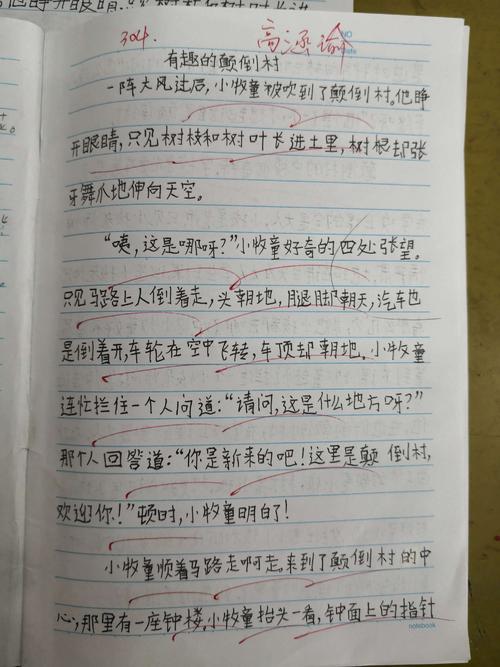 304.
高涵瑜
有趣的颠倒村
一阵大风过后，小牧童被吹到了颠倒村。他睁
开眼睛，只见树枝和树叶长进土里，树根却张
牙舞爪地伸向天空。
“咦，这是哪呀？”小牧童好奇的四处张望。
只见马路上人倒着走，头朝地，腿却朝天，汽车也
是倒着开，车轮在空中飞转，车顶却朝地。小牧童
连忙拦住一个人问道：“请问，这是什么地方呀？”
那个人回答道：“你是新来的吧！这里是颠倒村，
欢迎你！”顿时，小牧童明白了！
小牧童顺着马路走啊走。来到了颠倒村的中
心，那里有一座钟楼，小牧童抬头一看，钟面上的指针
notebook